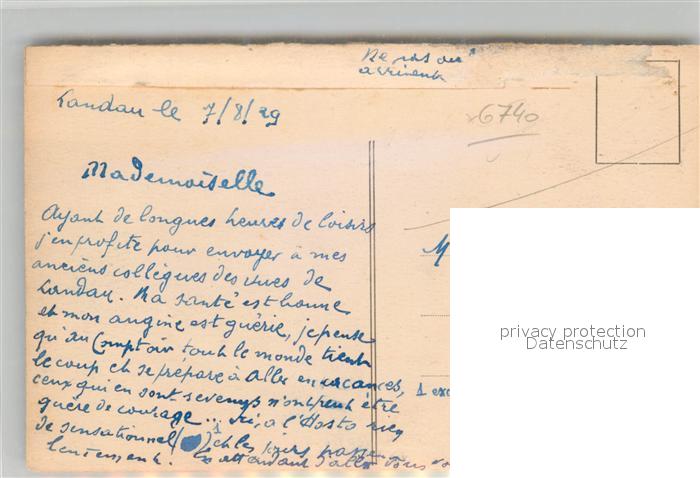 Landau le 7/8/29
6740
Mademoiselle
Ayant de longues heures de loisirs
j'en profite pour envoyer à mes
anciens collègues des vues de
Landau. Ma santé est bonne
et mon angine est guérie, je pense
qu'au Comptoir tout le monde tient
le coup et se prépare à aller en vacances,
ceux qui en sont revenus n'ont peut être
guère de courage ... Ici, à l'Hosto rien
de sensationnel et les jours passent
lentement. En attendant d'aller vous
M
1
privacy protection
Datenschutz